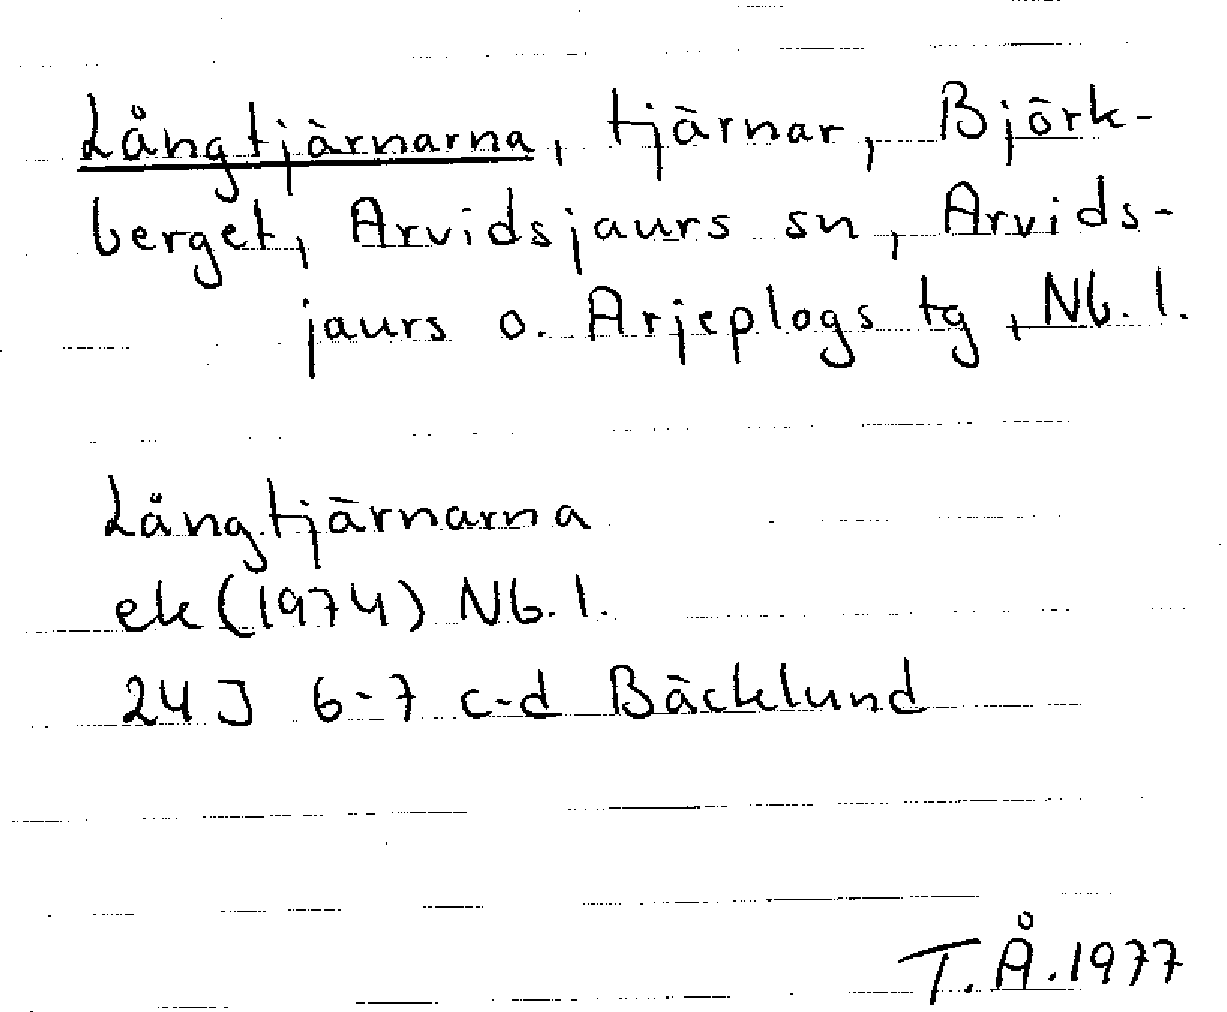 Långtjärnarna, tjärnar, Björk-
berget, Arvidsjaurs sn, Arvids-
jaurs o. Arjeplogs tg, Nb. l.
Långtjärnarna
ek (1974) Nb. l.
24 J 6-7 c-d Bäcklund
T.Å.1977